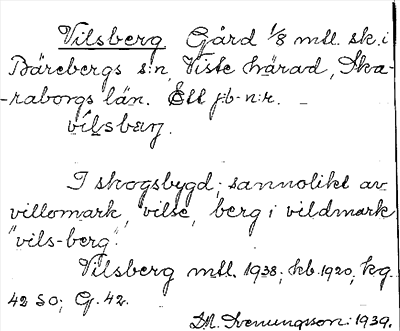 Vilsberg Gård 1/8 mtl. sk. i
Bärebergs s:n, Viste härad, Ska-
-raborgs län. Ett jb-n:r.
vílsbærj.
I skogsbygd; sannolikt av
villomark, vilse, berg i vildmark
"vils-berg".
Vilsberg mtl. 1938; kb. 1920; kg.
42 SO; G. 42.
Svenungsson: 1939.